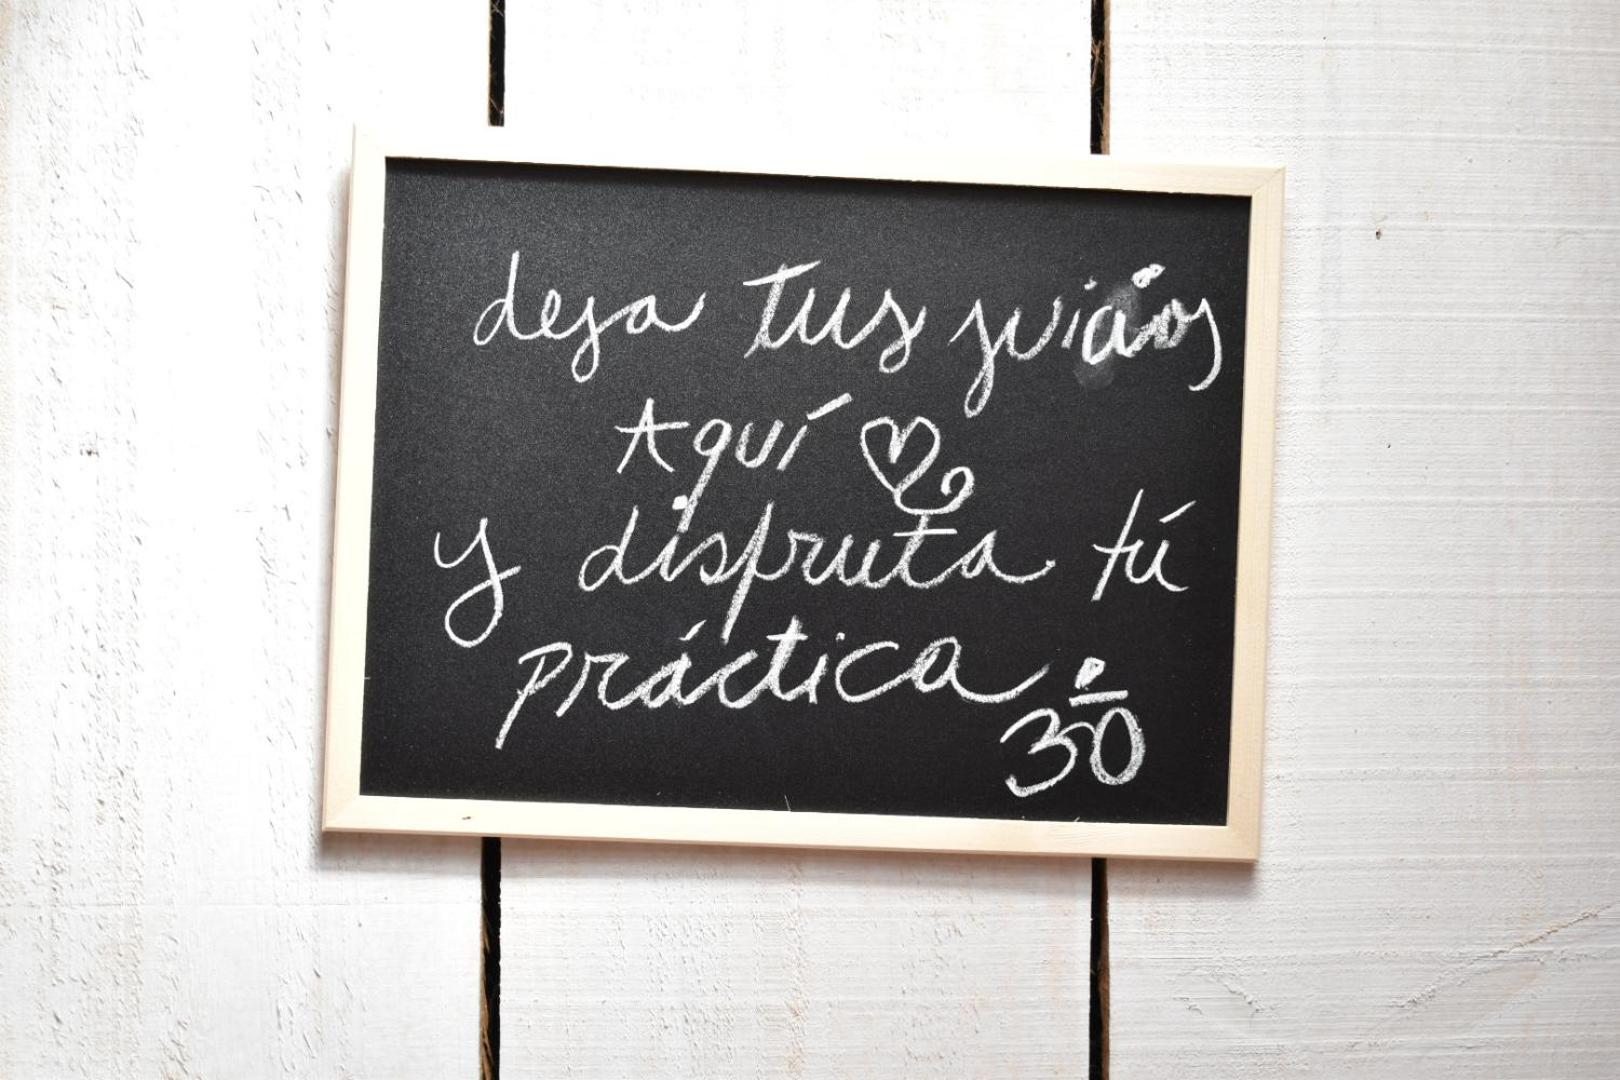 deja tus juicios
Aquí
y disfruta tú
práctica